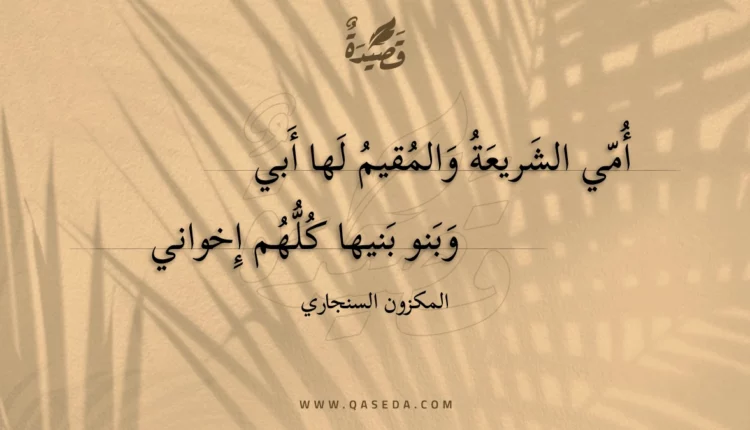 قَصِيْدَةٌ
أُمّي الشَريعَةُ وَالمُقيمُ لَها أَبي
وَبَنو بَنيها كُلُّهُم إِخواني
المكزون السنجاري
WWW.QASEDA.COM